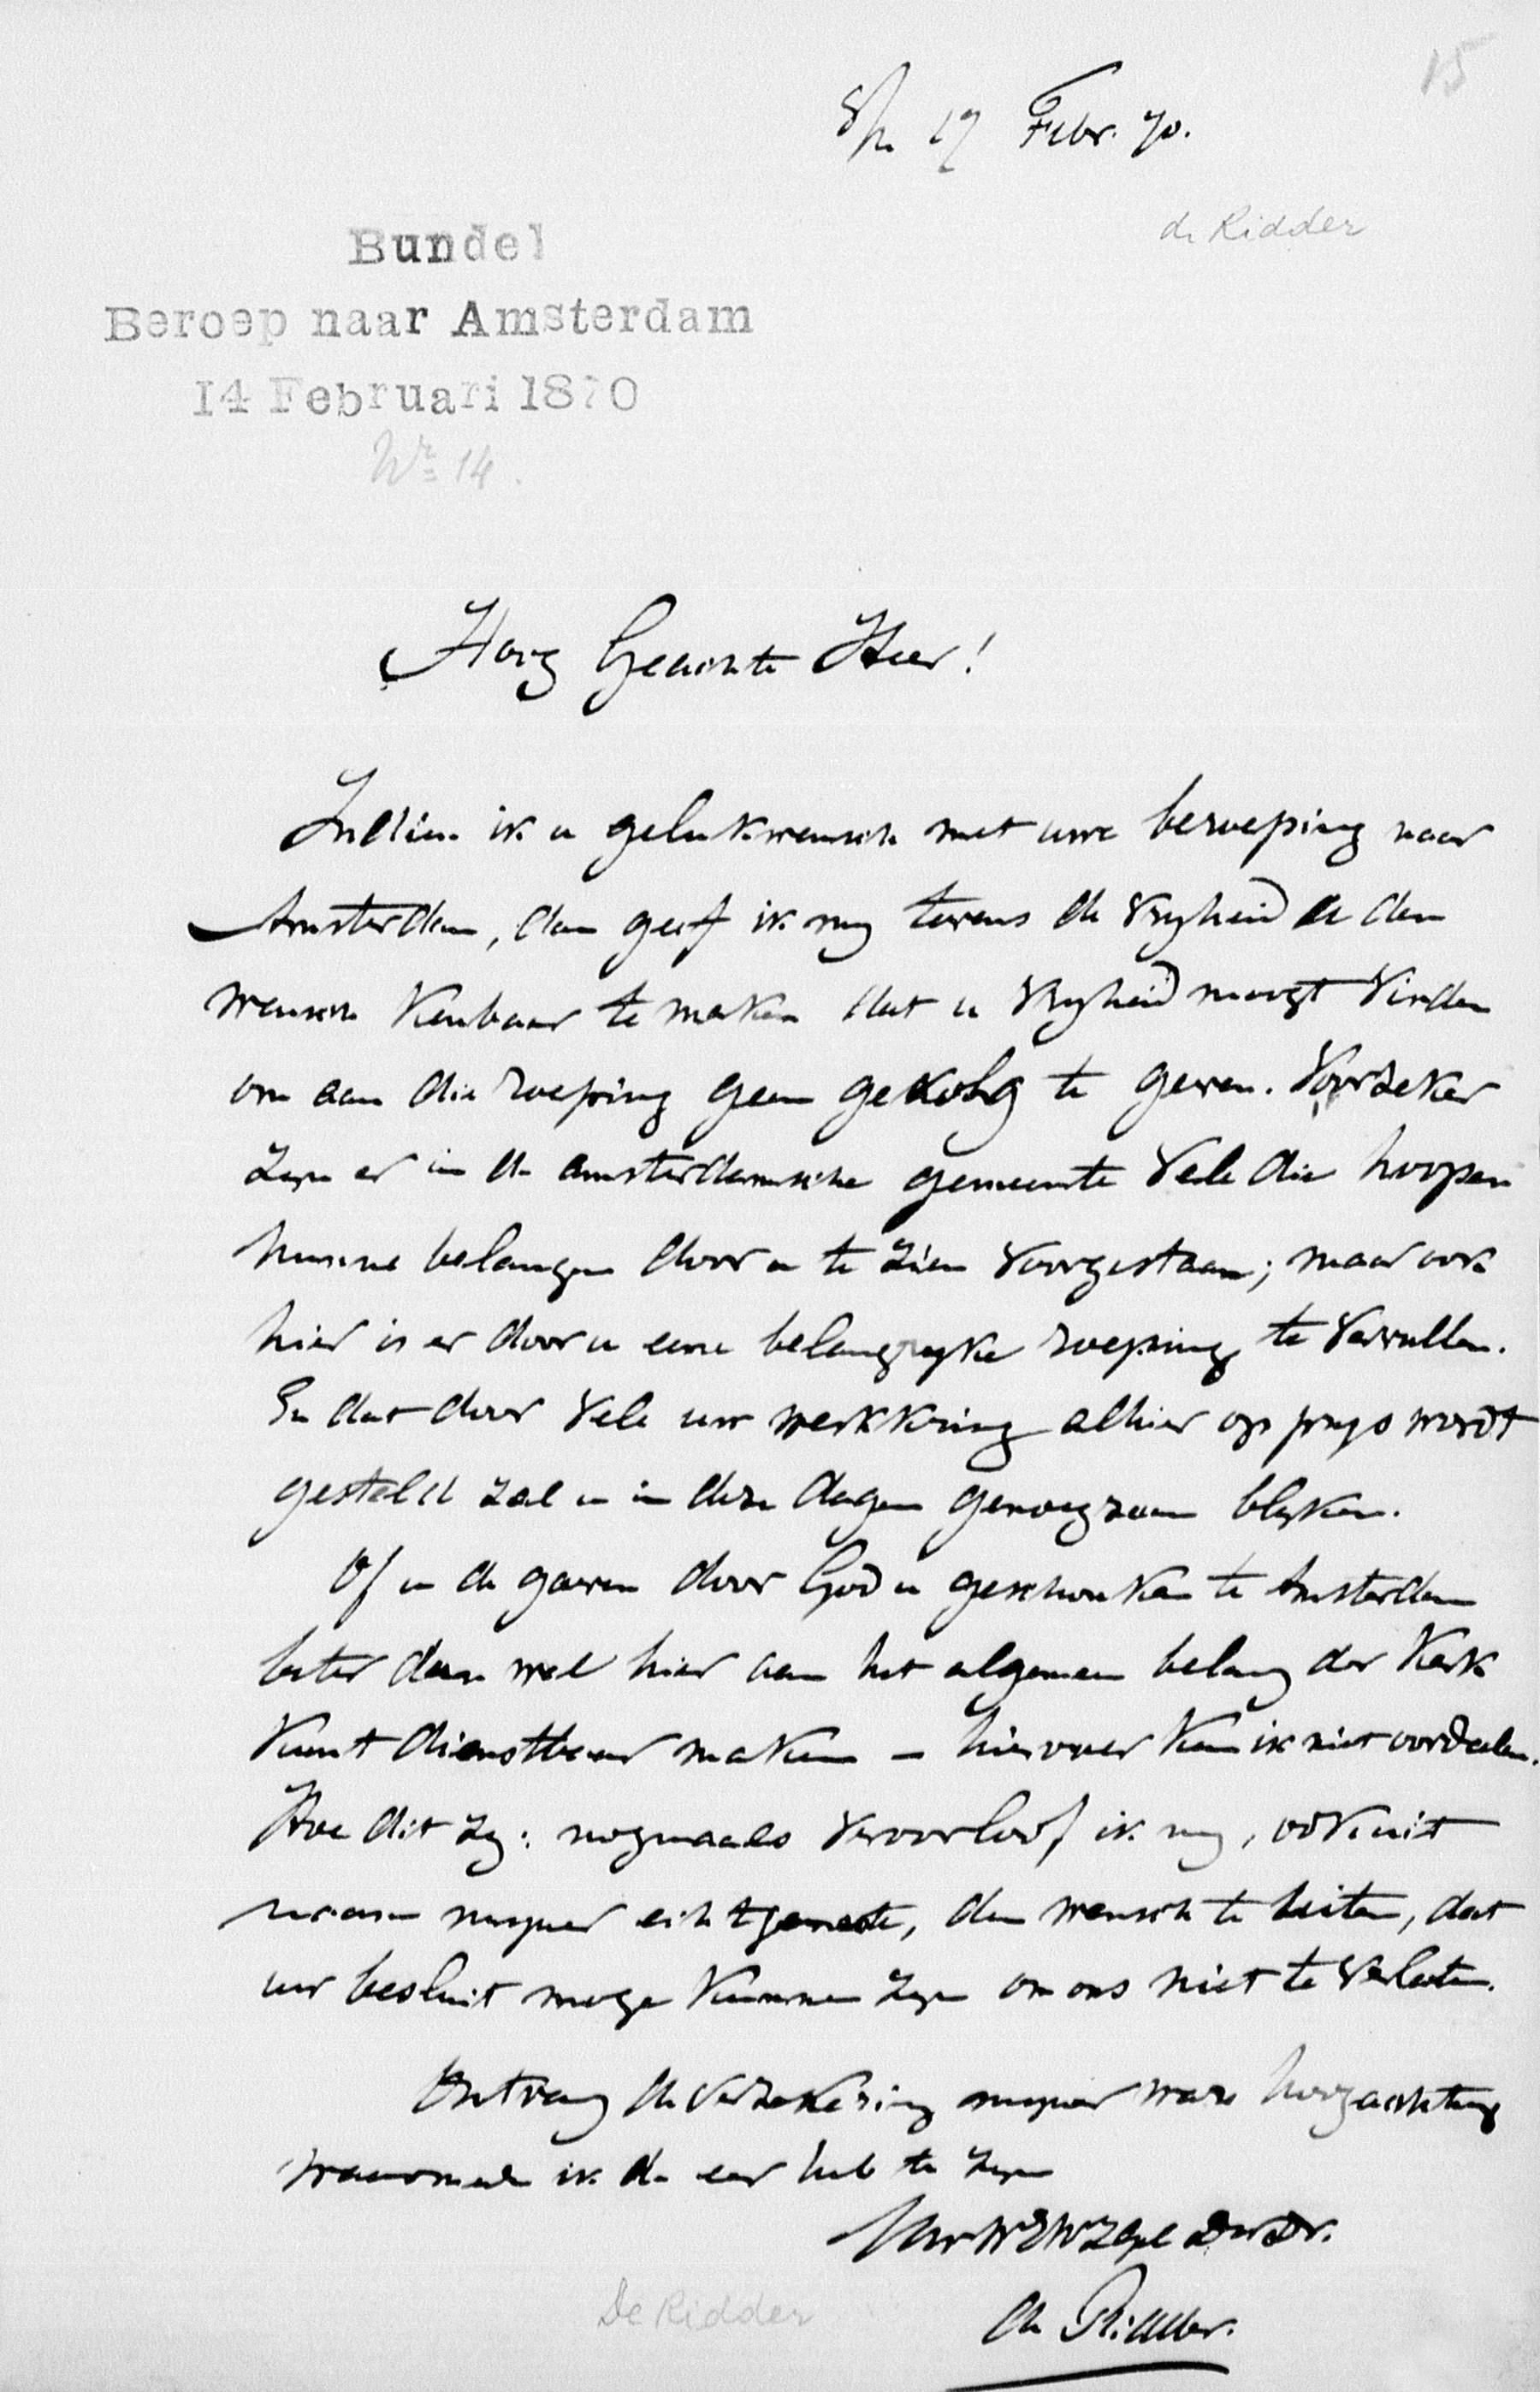 15
17 Febr. 70.
de Ridder
Bundel
Beroep naar Amsterdam
14 Februari 1870
Nr 14.
Hoog Geachte Heer!
Indien ik u gelukwensch met uwe beroeping naar
Amsterdam, dan geef ik my tevens de vryheid u den
wensch kenbaar te maken dat u vryheid moogt vinden
om aan die roeping geen gevolg te geven. Voorzeker
zyn er in de amsterdamsche gemeente vele die hoopen
hunne belangen door u te zien voorgestaan; maar ook
hier is er door u eene belangryke roeping te vervullen.
En dat door vele uw werkkring alhier op prys wordt
gesteld zal u in deze dagen genoegzaam blyken.
Of u de gaven door God u geschonken te Amsterdam
beter dan wel hier aan het algemeen belang der Kerk
kunt dienstbaar maken – hierover kan ik niet oordeelen.
Hoe dit zy: nogmaals veroorloof ik my, ook uit
naam myner echtgenoote, den wensch te uiten, dat
uw besluit moge kunnen zyn om ons niet te verlaten.
Ontvang de verzekering myner ware hoogachting
waarmede ik de eer heb te zyn
UwWEWZGel DwDr.
de Ridder.
De Ridder